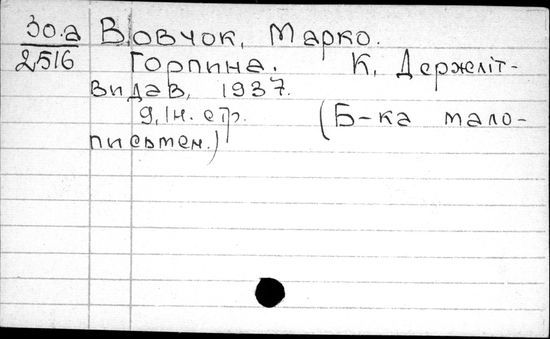 30.а Вовчок, Марко.
2516 Горпина. К, Держліт-
видав, 1937.
9, Ін. стр. (Б-ка мало-
письмен.)